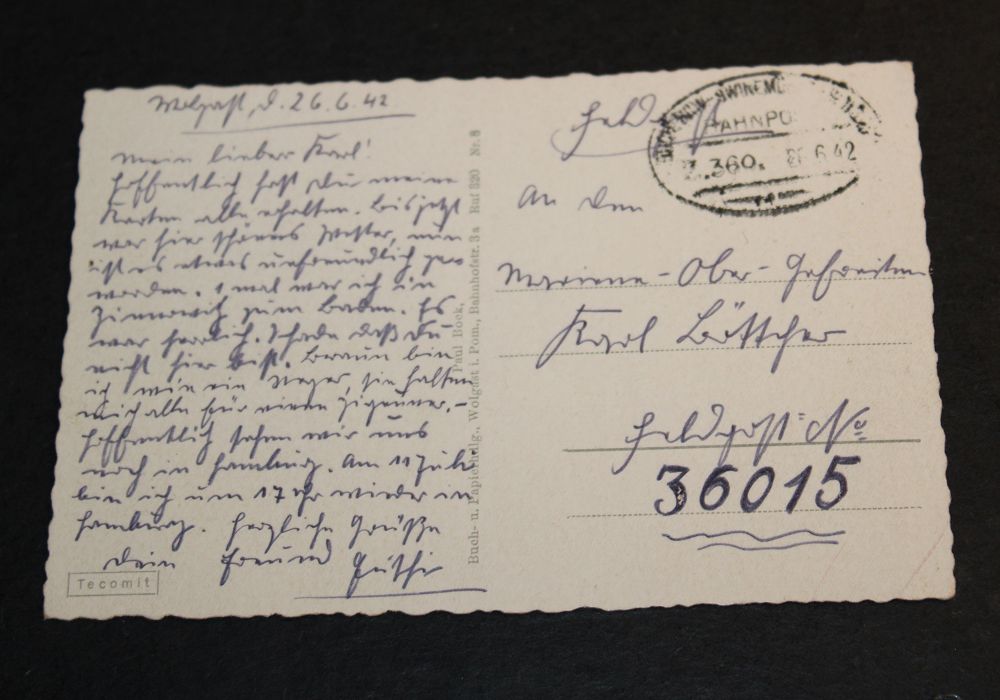 Wolgast, d. 26.6.42
Mein lieber Karl!
Hoffentlich hast Du meine
Karten alle erhalten. Bis jetzt
war hier schönes Wetter, nun
ist es etwas unfreundlich ge-
worden. 1 mal war ich in
Zinnowitz zum Baden. Es
war herrlich. Schade daß Du
nicht hier bist. Braun bin
ich wie ein Neger, sie halten
mich alle für einen Zigeuner.-
Hoffentlich sehen wir uns
noch in Hamburg. Am 11 Juli
bin ich um 17 Uhr wieder in
Hamburg. Herzliche Grüße
Dein Freund
Tecomit
Paul Bock,
Buch- u. Papierhdlg., Wolgast i. Pom., Bahnhofstr. 3a Ruf 320 Nr. 8
Feldpost
BAHNPO
Z.360. 6.42
An den
Marine-Ober-Gefreiten
Karl Böttcher
Feldpost=No
36015